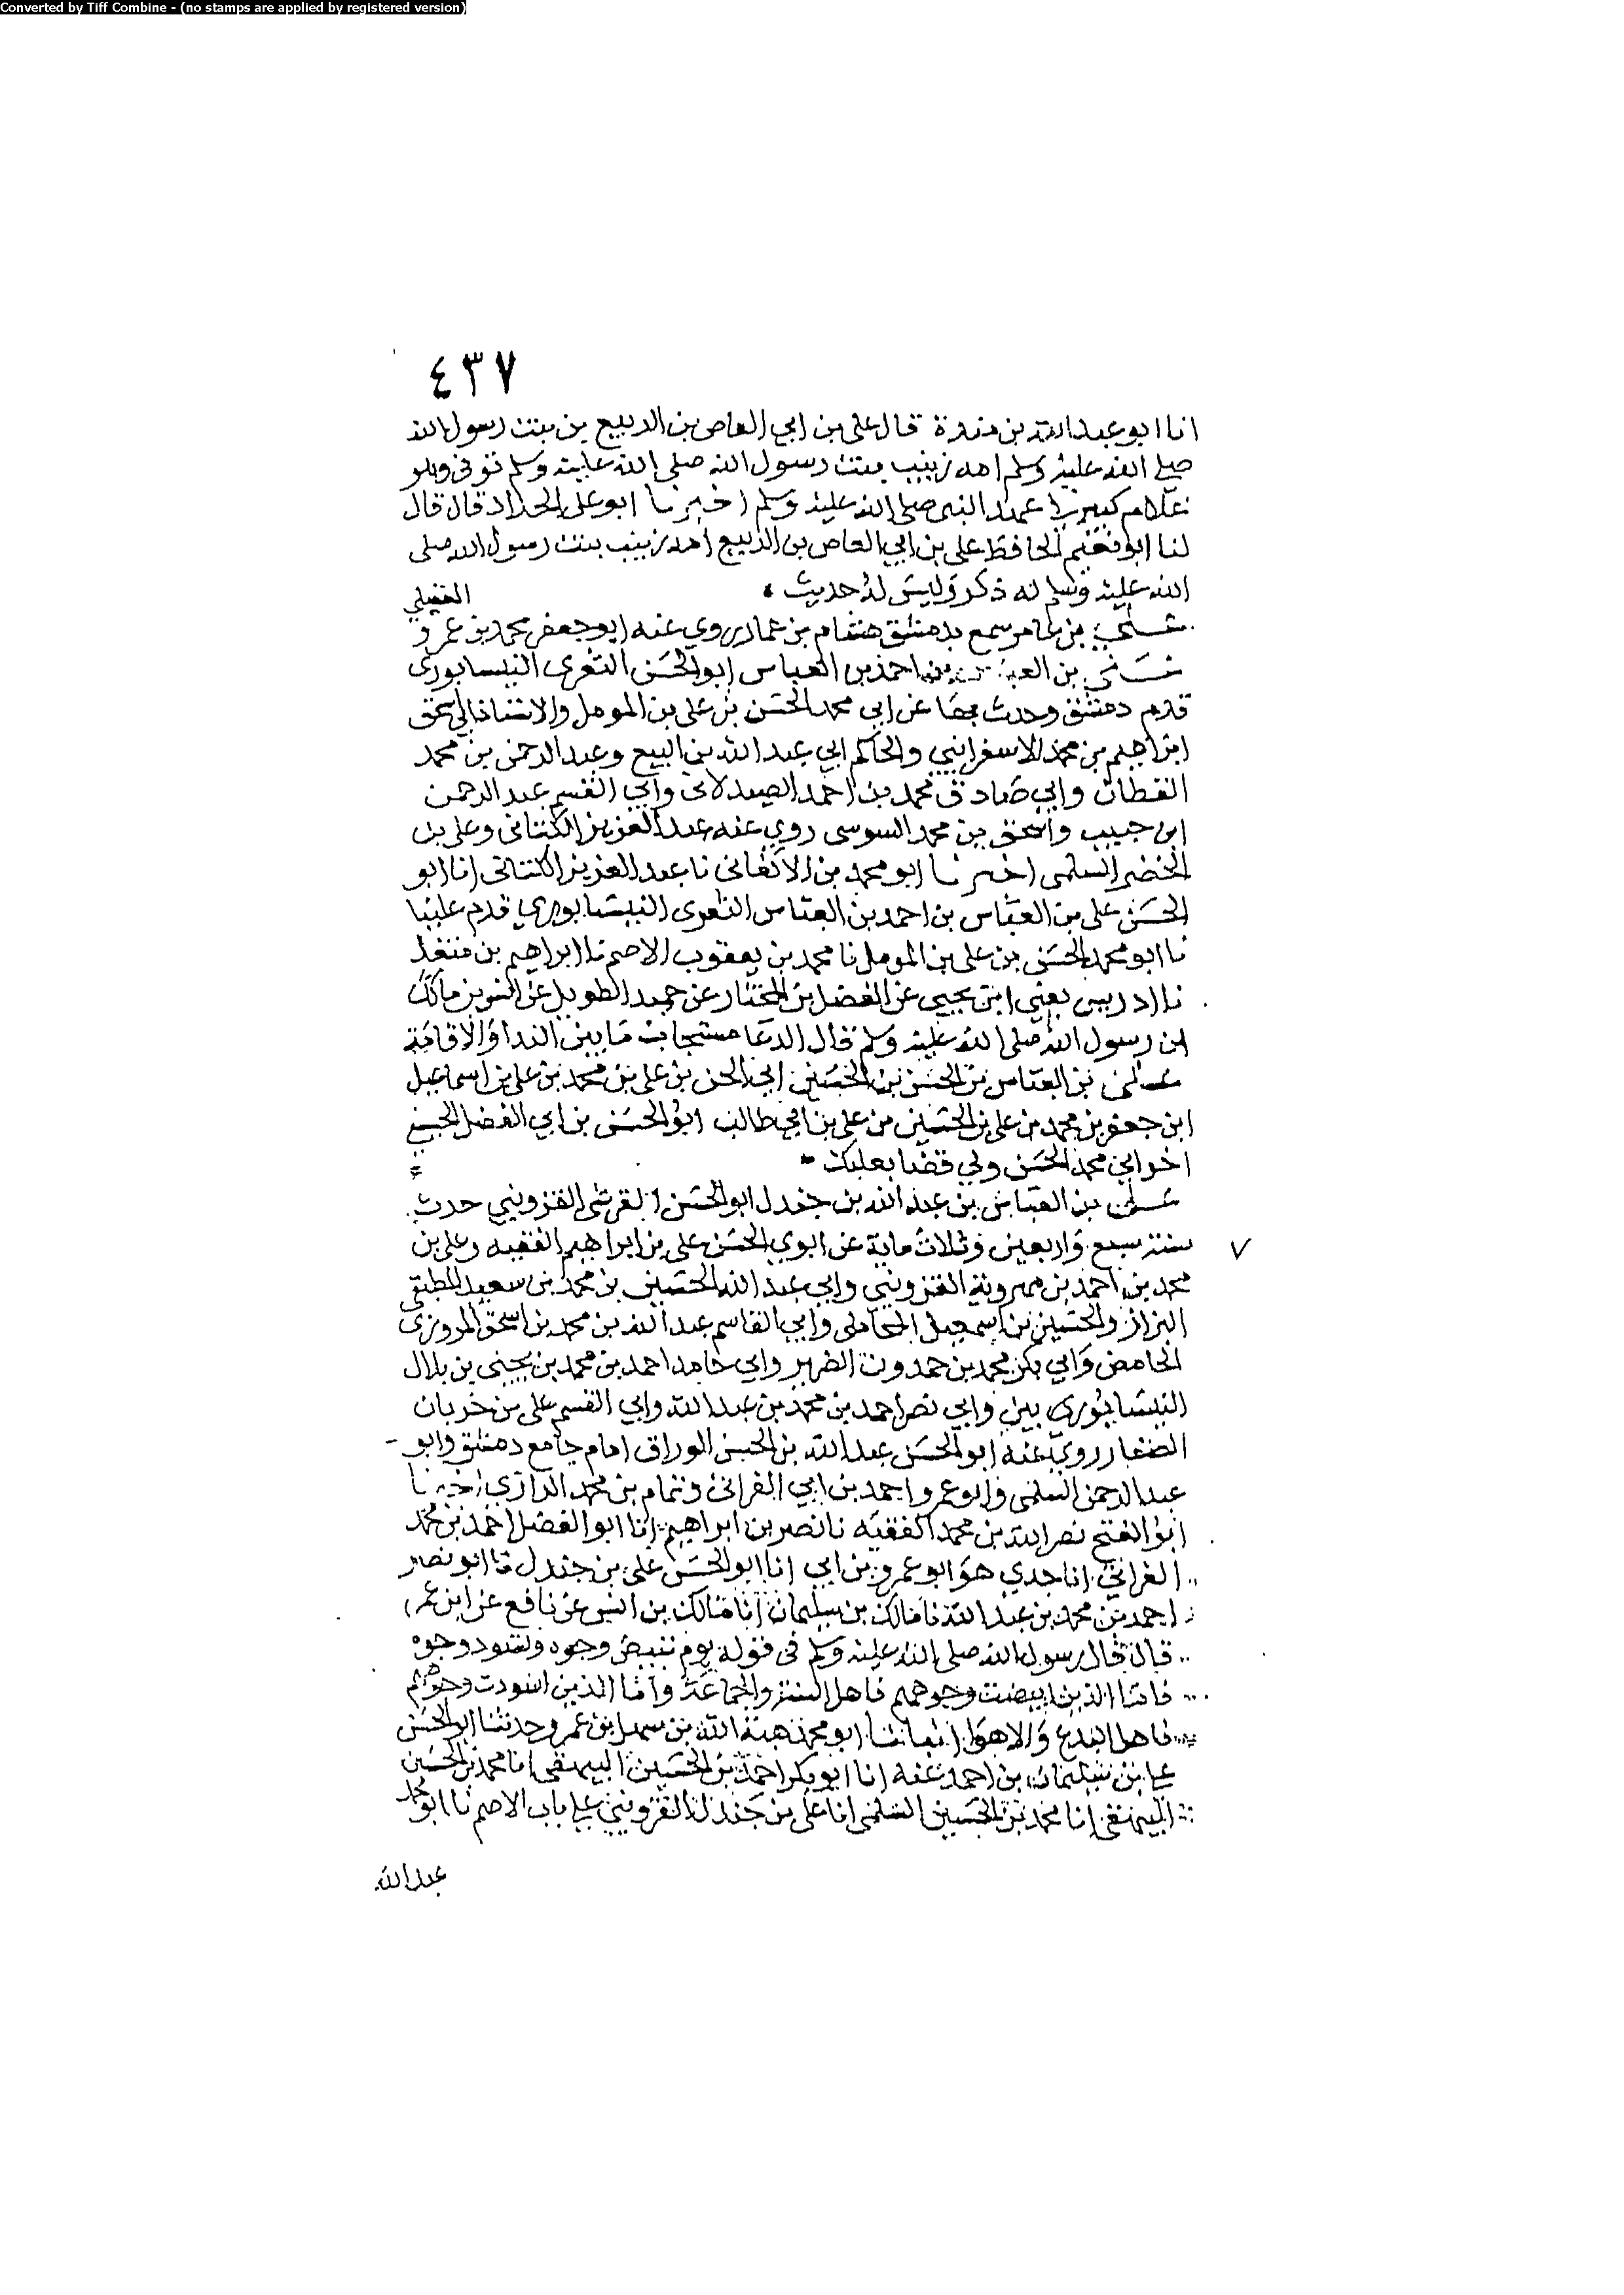 Converted by Tiff Combine - (no stamps are applied by registered version)
٤٣٧
انا ابو عبد الله بن مندة قال علي بن ابي العاص بن الربيع بن بنت رسول الله
صلى الله عليه وسلم امه زينب بنت رسول الله صلى الله عليه وسلم توفي وهو
غلام كبير في عهد النبي صلى الله عليه وسلم اخبرنا ابو علي الحداد قال قال
لنا ابو نعيم الحافظ علي بن ابي العاص بن الربيع امه زينب بنت رسول الله صلى
الله عليه وسلم له ذكر وليس له حديث
العقيلي
علي بن عامر سمع بدمشق هشام بن عمار روي عنه ابو جعفر محمد بن عمرو
علي بن العباس بن احمد بن العباس ابو الحسن الثغري النيسابوري
قدم دمشق وحدث بها عن ابي محمد الحسن بن علي بن المومل والاستاذ ابي اسحق
ابراهيم بن محمد الاسفرايني والحاكم ابي عبد الله بن البيع وعبد الرحمن بن محمد
القطان وابي صادق محمد بن احمد الصيدلاني وابي القسم عبد الرحمن
ابن حبيب واسحق بن محمد السوسي روي عنه عبد العزيز الكتاني وعلي بن
الخضر السلمي اخبرنا ابو محمد بن الاكفاني نا عبد العزيز الكتاني انا ابو
الحسن علي بن العباس بن احمد بن العباس الثغري النيسابوري قدم علينا
نا ابو محمد الحسن بن علي بن المومل نا محمد بن يعقوب الاصم نا ابراهيم بن منقذ
نا ادريس يعني ابن يحيى عن الفضل بن المختار عن حميد الطويل عن انس بن مالك
ان رسول الله صلى الله عليه وسلم قال الدعا مستجاب ما بين الندا والاقامة
علي بن العباس بن الحسن بن الحسين ابي الجن بن علي بن محمد بن علي بن اسماعيل
ابن جعفر بن محمد بن علي بن الحسين بن علي بن ابي طالب ابو الحسن بن ابي الفضل الحسيني
اخو ابي محمد الحسن ولي قضا بعلبك
علي بن العباس بن عبد الله بن جندل ابو الحسن القرشي القزويني حدث
سنة سبع واربعين وثلاث ماية عن ابوي الحسن علي بن ابراهيم الفقيه وعلي بن
٧
محمد بن احمد بن مهروية القزويني وابي عبد الله الحسين بن محمد بن سعيد المطبقي
البزاز والحسين بن اسمعيل المحاملي وابي القاسم عبد الله بن محمد بن اسحق المروزي
الحامض وابي بكر محمد بن حمدون الضرير وابي حامد احمد بن محمد بن يحيى بن بلال
النيسابوري بين وابي نصر احمد بن محمد بن عبد الله وابي القسم علي بن خربان
الصفار روي عنه ابو الحسن عبد الله بن الحسن الوراق امام جامع دمشق وابو
عبد الرحمن السلمي وابو عمرو احمد بن ابي الفراتي وتمام بن محمد الرازي اخبرنا
ابو الفتح نصر الله بن محمد الفقيه نا نصر بن ابراهيم انا ابو الفضل احمد بن محمد
الفراتي انا جدي هو ابو عمرو بن ابي انا ابو الحسن علي بن جندل نا ابو نصر
احمد بن محمد بن عبد الله نا مالك بن سليمان انا مالك بن انس عن نافع عن ابن عمر
قال قال رسول الله صلى الله عليه وسلم في قوله يوم تبيض وجوه وتسود وجوه
فاما الذين ابيضت وجوههم فاهل السنة والجماعة واما الذين اسودت وجوههم
فاهل البدع والاهوا انبانا ابو محمد هبة الله بن سهل بن عمر وحدثنا ابو الحسن
علي بن سليمان بن احمد عنه انا ابو بكر احمد بن الحسين البيهقي انا محمد بن الحسين
البيهقي انا محمد بن الحسين السلمي انا علي بن جندل القزويني علي باب الاصم نا ابو محمد
عبد الله